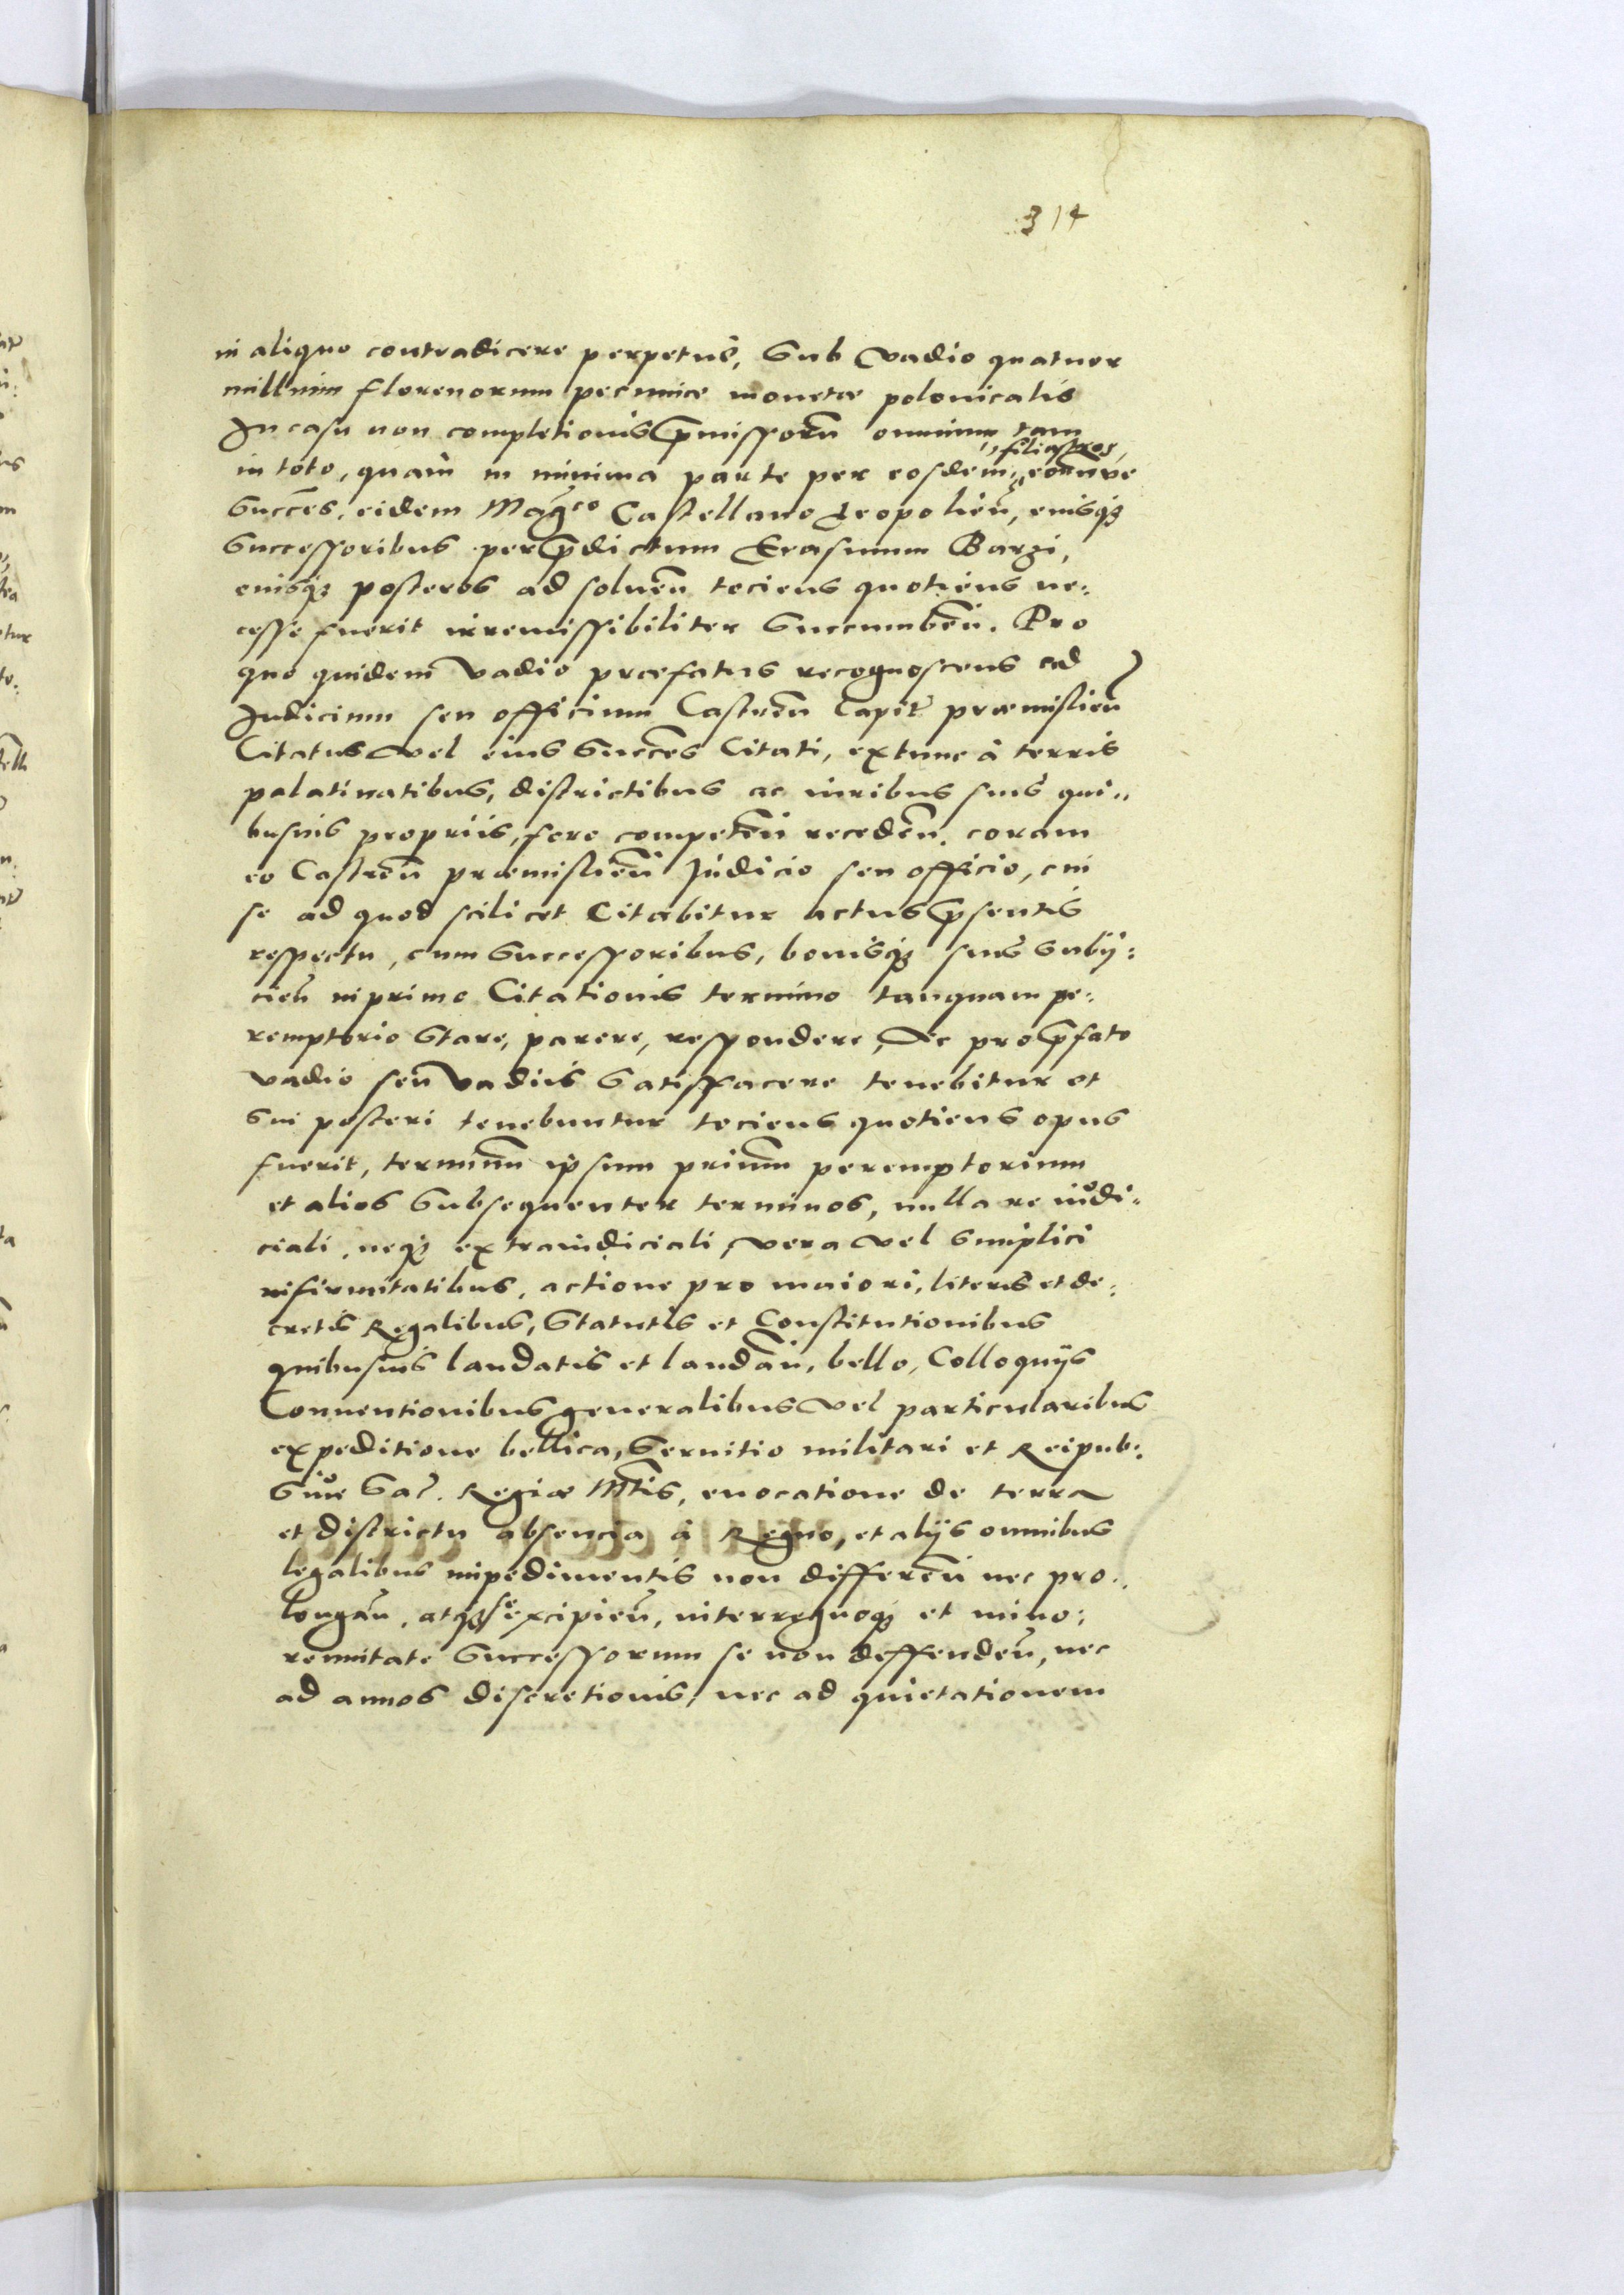 314
in aliquo contradicere perpetuè, sub vadio quatuor
millium florenorum pecuniæ monetæ polonicalis
In casu non completionis p̄missorū omnium tam
in toto, quàm in minima parte per eosdem, filiastros, eorūve
succēs. eidem Mag̃co Castellano Leopolień, eiusq̨
successoribus per p̄dictum Erasmum Barzi,
eiusq̨ posteros ad solueń tociens quotiens ne:
cesse fuerit irremissibiliter succumbeń. Pro
quo quidem vadio præfatus recognoscens ad
Judicium seu officium Castreń Capit̃ præmislień
Citatus vel eius succēs Citati, extunc à terris
palatinatibus, districtibus ac iuribus suis qui,,
busuis propriis, foro competeń recedeń. coram
eo Castreń præmislień Judicio seu officio, cui
se ad quod scilicet Citabitur actus p̄sentis
respectu, cum successoribus, bonisq̨ suis subij:
cień in primo Citationis termino tanquam pe:
remptorio stare, parere, respondere, Ac pro p̄fato
vadio seu vadiis satisfacere tenebitur et
sui posteri tenebuntur tociens quotiens opus
fuerit, terminū ipsum primū peremptorium
et alios subsequenter terminos, nulla re iudi:
ciali, neq̨ extraiudiciali, vera vel simplici
infirmitatibus, actione pro maiori, literis et de:
cretis Regalibus, statutis et Constitutionibus
quibusuis laudatis et laudań, bello, Colloquijs
Conuentionibus generalibus vel particularibus
expeditione bellica, seruitio militari et Reipub:
siue Sac̃. Regiæ Mt̃is, euocatione de terra
et districtu absencia à Regno, et alijs omnibus
legalibus impedimentis non differeń nec pro:
longań, atq̨ se excipień, interregnoq̨ et mino:
rennitate successorum se non deffendeń, nec
ad annos discretionis, nec ad quietationem